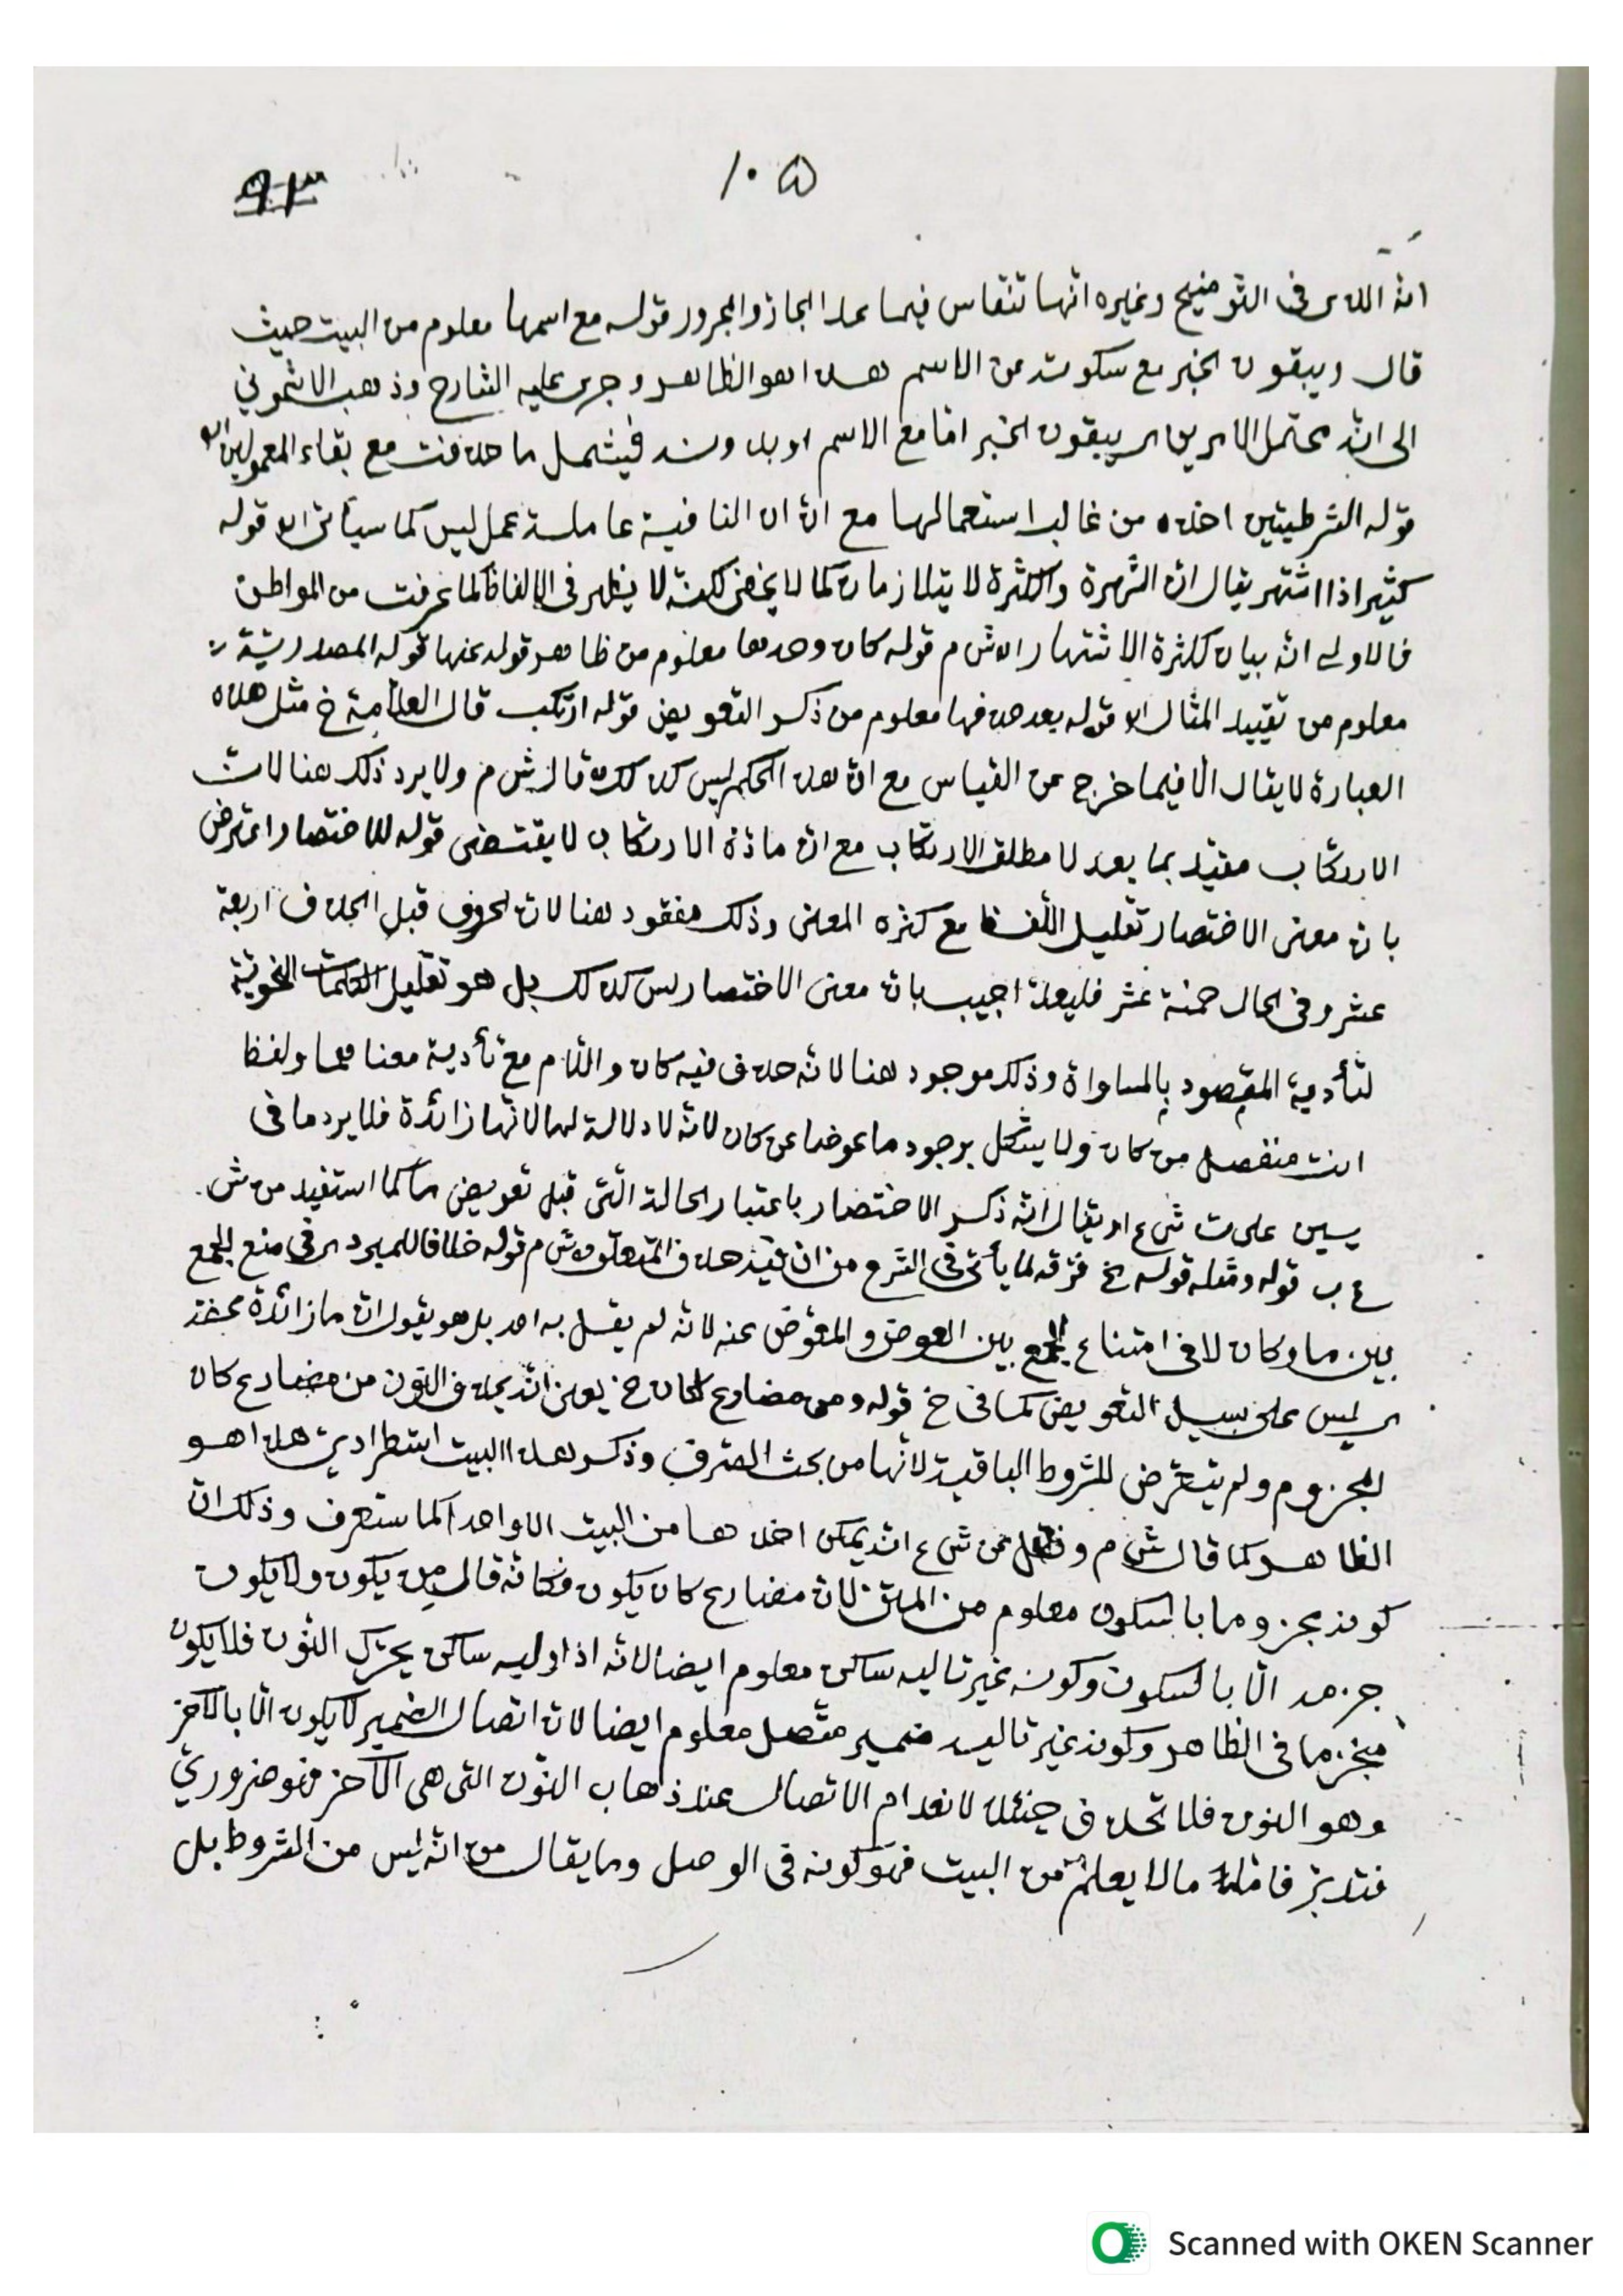 ١٠۵
٩٣
انه الذى فى التوضيح وغيره انها تنقاس فيما عدا الجار والمجرور قوله مع اسمها معلوم من البيت حيث
قال ويبقون الخبر مع سكوته عن الاسم هذا هو الظاهر وجرى عليه الشارح وذهب الاشمونى
الى انه محتمل الامرين اى يبقون الخبر اما مع الاسم او بدونه فيشمل ما حذفت مع بقاء المعمولين اه
قوله الشرطيتين اخذه من غالب استعمالها مع ان ان النافية عاملة عمل ليس كما سيأتى اه قوله
كثيرا ذا اشتهر يقال ان الشهرة والكثرة لا يتلازمان كما لا يخفى لكنه لا يظهر فى الالفاظ كما عرفت من المواطن
فالاولى انه بيان لكثرة الاشتهار اه ش م قوله كان وحدها معلوم من ظاهر قوله عنها قوله المصدرية
معلوم من تقييد المثال اه قوله بعد حذفها معلوم من ذكر التعويض قوله ارتكب قال العلامة خ مثل هذه
العبارة لا يقال الا فيما خرج عن القياس مع ان هذا الحكم ليس كذلك قال ش م ولا يرد ذلك هنا لان
الارتكاب مقيد بما بعد لا مطلق الارتكاب مع ان ماذة الارتكاب لا يقتضى قوله للاختصار اعترض
بان معنى الاختصار تقليل اللفظ مع كثرة المعنى وذلك مفقود هنا لان الحروف قبل الحذف اربعة
عشر وفى الحال خمسة عشر فليعد اجيب بان معنى الاختصار ليس كذلك بل هو تقليل الكلمات النحوية
لتأدية المقصود بالمساواة وذلك موجود هنا لانه حذف فيه كان واللام مع تأدية معناهما ولفظ
انت منفصل من كان ولا يشكل بوجود ما عوضا عن كان لانه لا دلالة لها لانها زائدة فلا يرد ما فى
يسين على ت ش ع او يقال انه ذكر الاختصار باعتبار الحالة التى قبل تعويض ما كما استفيد من ش
ع ب قوله ومثله قوله خ فرقه لما يأتى فى الشرح من ان فيه حذف المتعلق ش م قوله خلافا للمبرد اى فى منع الجمع
بين ما وكان لا فى امتناع الجمع بين العوض والمعوض عنه لانه لم يقل به احد بل هو يقول ان ما زائدة محضة
اى ليس على سبيل التعويض كما فى خ قوله ومن مضارع لكان خ يعنى انه يحذف النون من مضارع كان
المجزوم ولم يتعرض للشروط الباقية لانها من بحث الصرف وذكر هذا البيت استطرادى هذا هو
الظاهر كما قال ش م ونقل عن ش ع انه يمكن اخذها من البيت الا واحدا كما ستعرف وذلك ان
كونه مجزوما بالسكون معلوم من المتن لان مضارع كان يكون فكانه قال من يكون ولا يكون
جزمه الا بالسكون وكونه غير تاليه ساكن معلوم ايضا لانه اذا وليه ساكن يحرك النون فلا يكون
منجزما فى الظاهر وكونه غير تاليه ضمير متصل معلوم ايضا لان اتصال الضمير لا يكون الا بالآخر
وهو النون فلا تحذف حينئذ لانعدام الاتصال عند ذهاب النون التى هى الآخر فهو ضرورى
فتدبر فاما ما لا يعلم من البيت فهو كونه فى الوصل وما يقال من انه ليس من الشروط بل
Scanned with OKEN Scanner